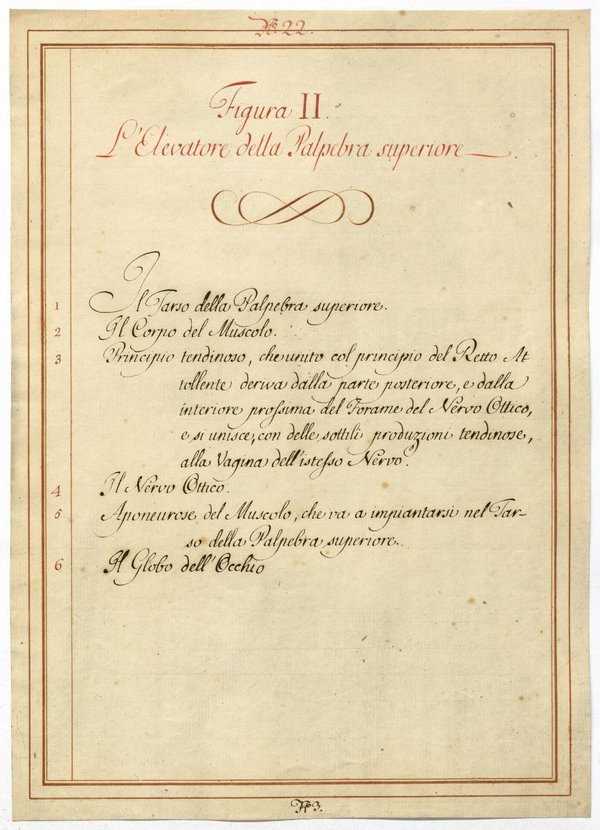 No. 22.
Figura II.
L'Elevatore della Palpebra superiore.
1 Il Tarso della Palpebra superiore.
2 Il Corpo del Muscolo.
3 Principio tendinoso, che unito col principio del Retto At
tollente deriva dalla parte posteriore, e dalla
interiore prossima del Forame del Nervo Ottico,
e si unisce, con delle sottili produzioni tendinose,
alla Vagina dell'istesso Nervo.
4 Il Nervo Ottico.
5 Aponeurose del Muscolo, che va a impiantarsi nel Tar-
so della Palpebra superiore.
6 Il Globo dell'Occhio
No 3.